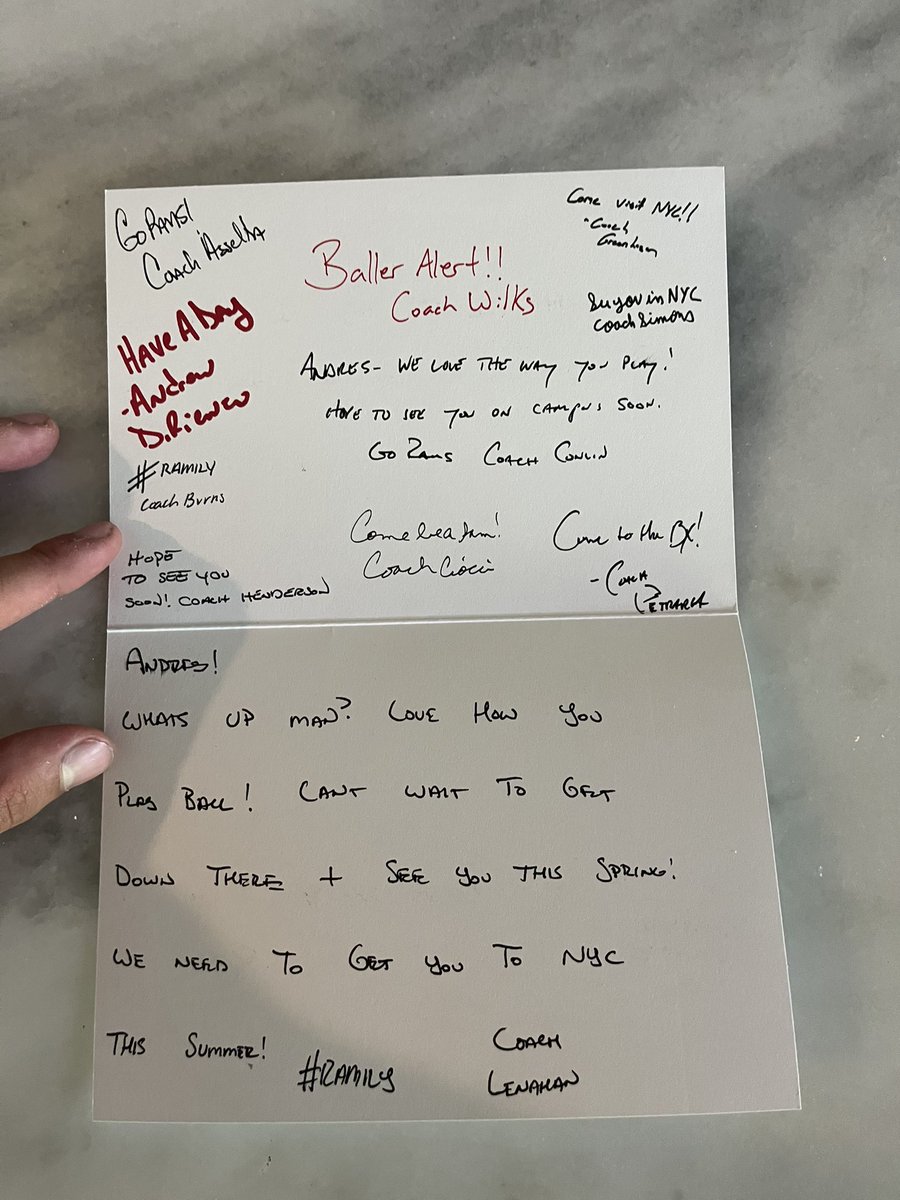 Go RAMS!
COACH Asselta
HAVE A DAY
-Andrew
D.Rienzo
#RAMILY
Coach Burns
HOPE
TO SEE YOU
SOON! COACH HENDERSON
Baller Alert!!
Coach Wilks
Come visit NYC!!
-Coach
See you in NYC
Coach Simons
ANDRES- WE LOVE THE WAY YOU PLAY!
HOPE TO SEE YOU ON CAMPUS SOON.
GO RAMS COACH CONLIN
Come be a Ram!
Coach Ciocci
Come to the BX!
-COACH
PETRARCA
ANDRES!
WHATS UP MAN? LOVE HOW YOU
PLAY BALL! CANT WAIT TO GET
DOWN THERE + SEE YOU THIS SPRING!
WE NEED TO GET YOU TO NYC
THIS SUMMER!
#RAMILY
COACH
LENAHAN